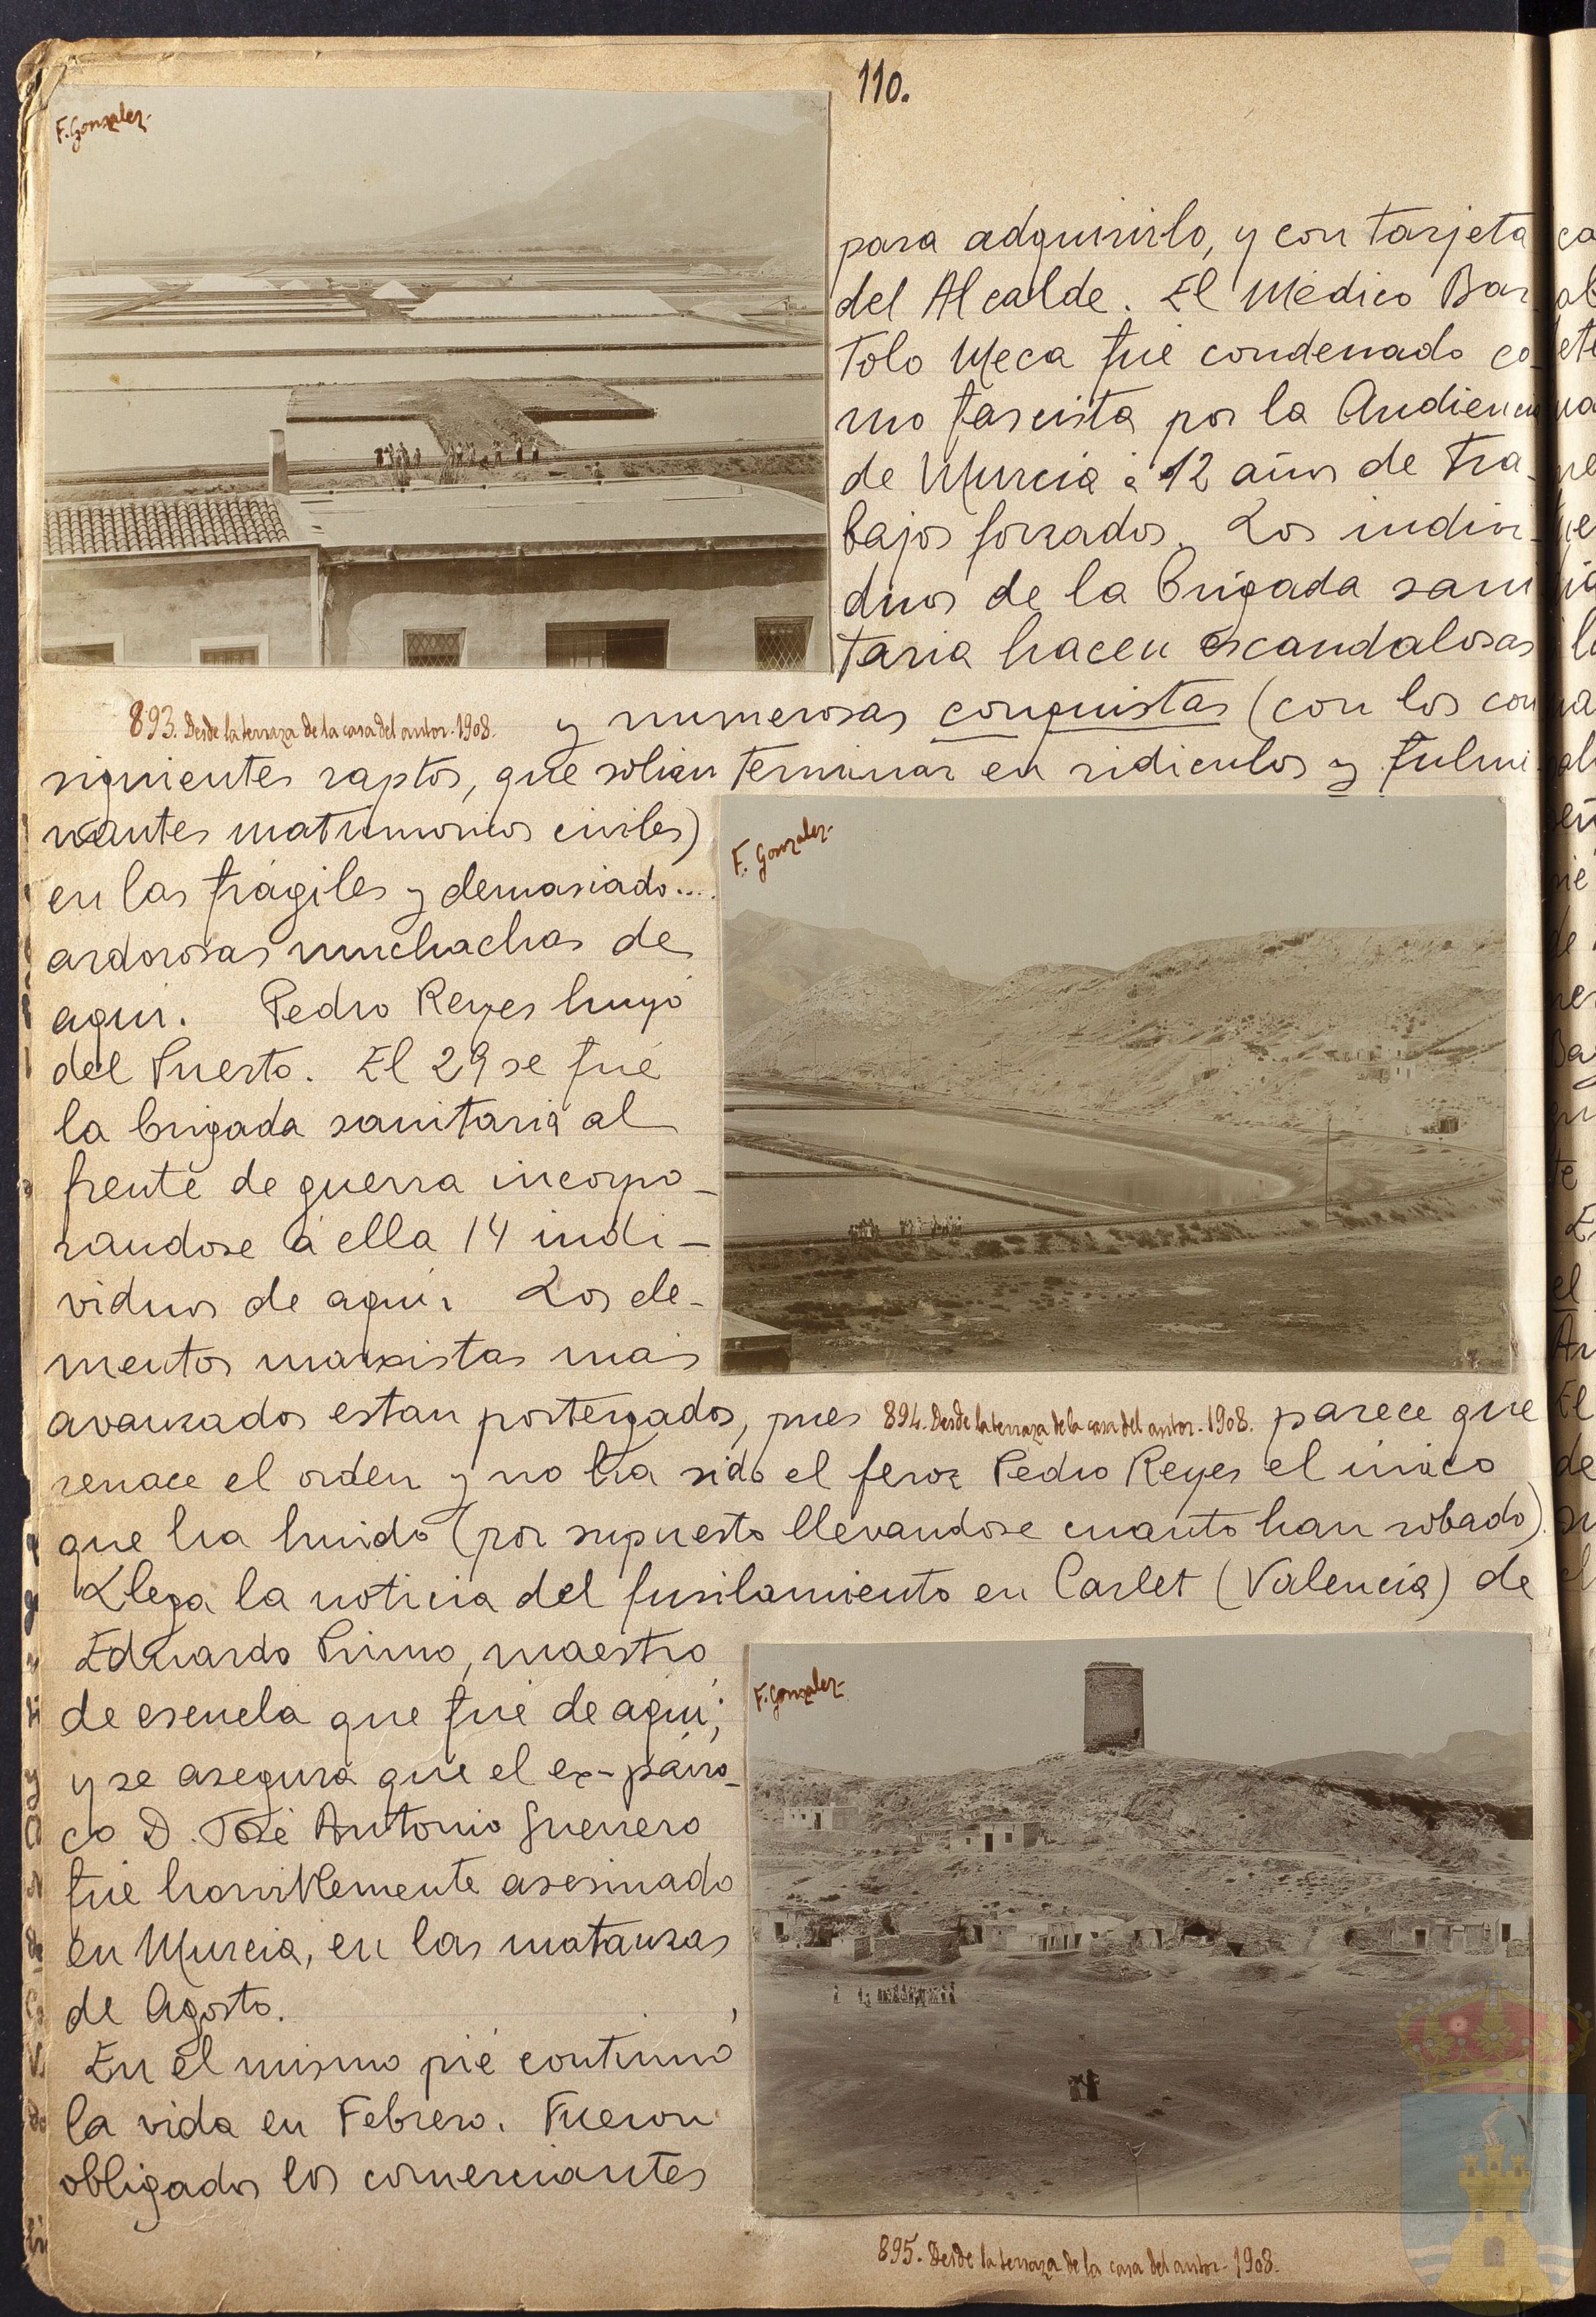 110.
F. Gonzalez-
para adquirirlo, y con tarjeta
del Alcalde. El Médico Bar-
tolo Meca fué condenado co-
mo fascista por la Audiencia
de Murcia á 12 años de tra-
bajos forzados. Los indivi-
duos de la brigada sani
taria hacen escandalosas
893. Desde la terraza de la casa del autor-1908.
y numerosas conquistas (con los con
siguientes raptos, que solian terminar en ridiculos y fulmi
nantes matrimonios civiles)
en las frágiles y demasiado...
ardorosas muchachas de
aqui. Pedro Reyes huyó
del Puerto. El 29 se fué
la brigada sanitaria al
frente de guerra incorpo-
randose á ella 14 indi-
viduos de aqui. Los ele-
mentos marxistas mas
F. Gonzalez-
avanzados estan postergados, pues
894. Desde la terraza de la casa del autor-1908.
parece que
renace el orden y no ha sido el feroz Pedro Reyes el único
que ha huido (por supuesto llevandose cuanto han robado).
Llega la noticia del fusilamiento en Carlet (Valencia) de
Eduardo Primo, maestro
de escuela que fué de aqui;
y se asegura que el ex-párro-
co D. José Antonio Guerrero
fué horriblemente asesinado
en Murcia, en las matanzas
de Agosto.
En el mismo pié continuó
la vida en Febrero. Fueron
obligados los comerciantes
F. Gonzalez-
895. Desde la terraza de la casa del autor-1908.